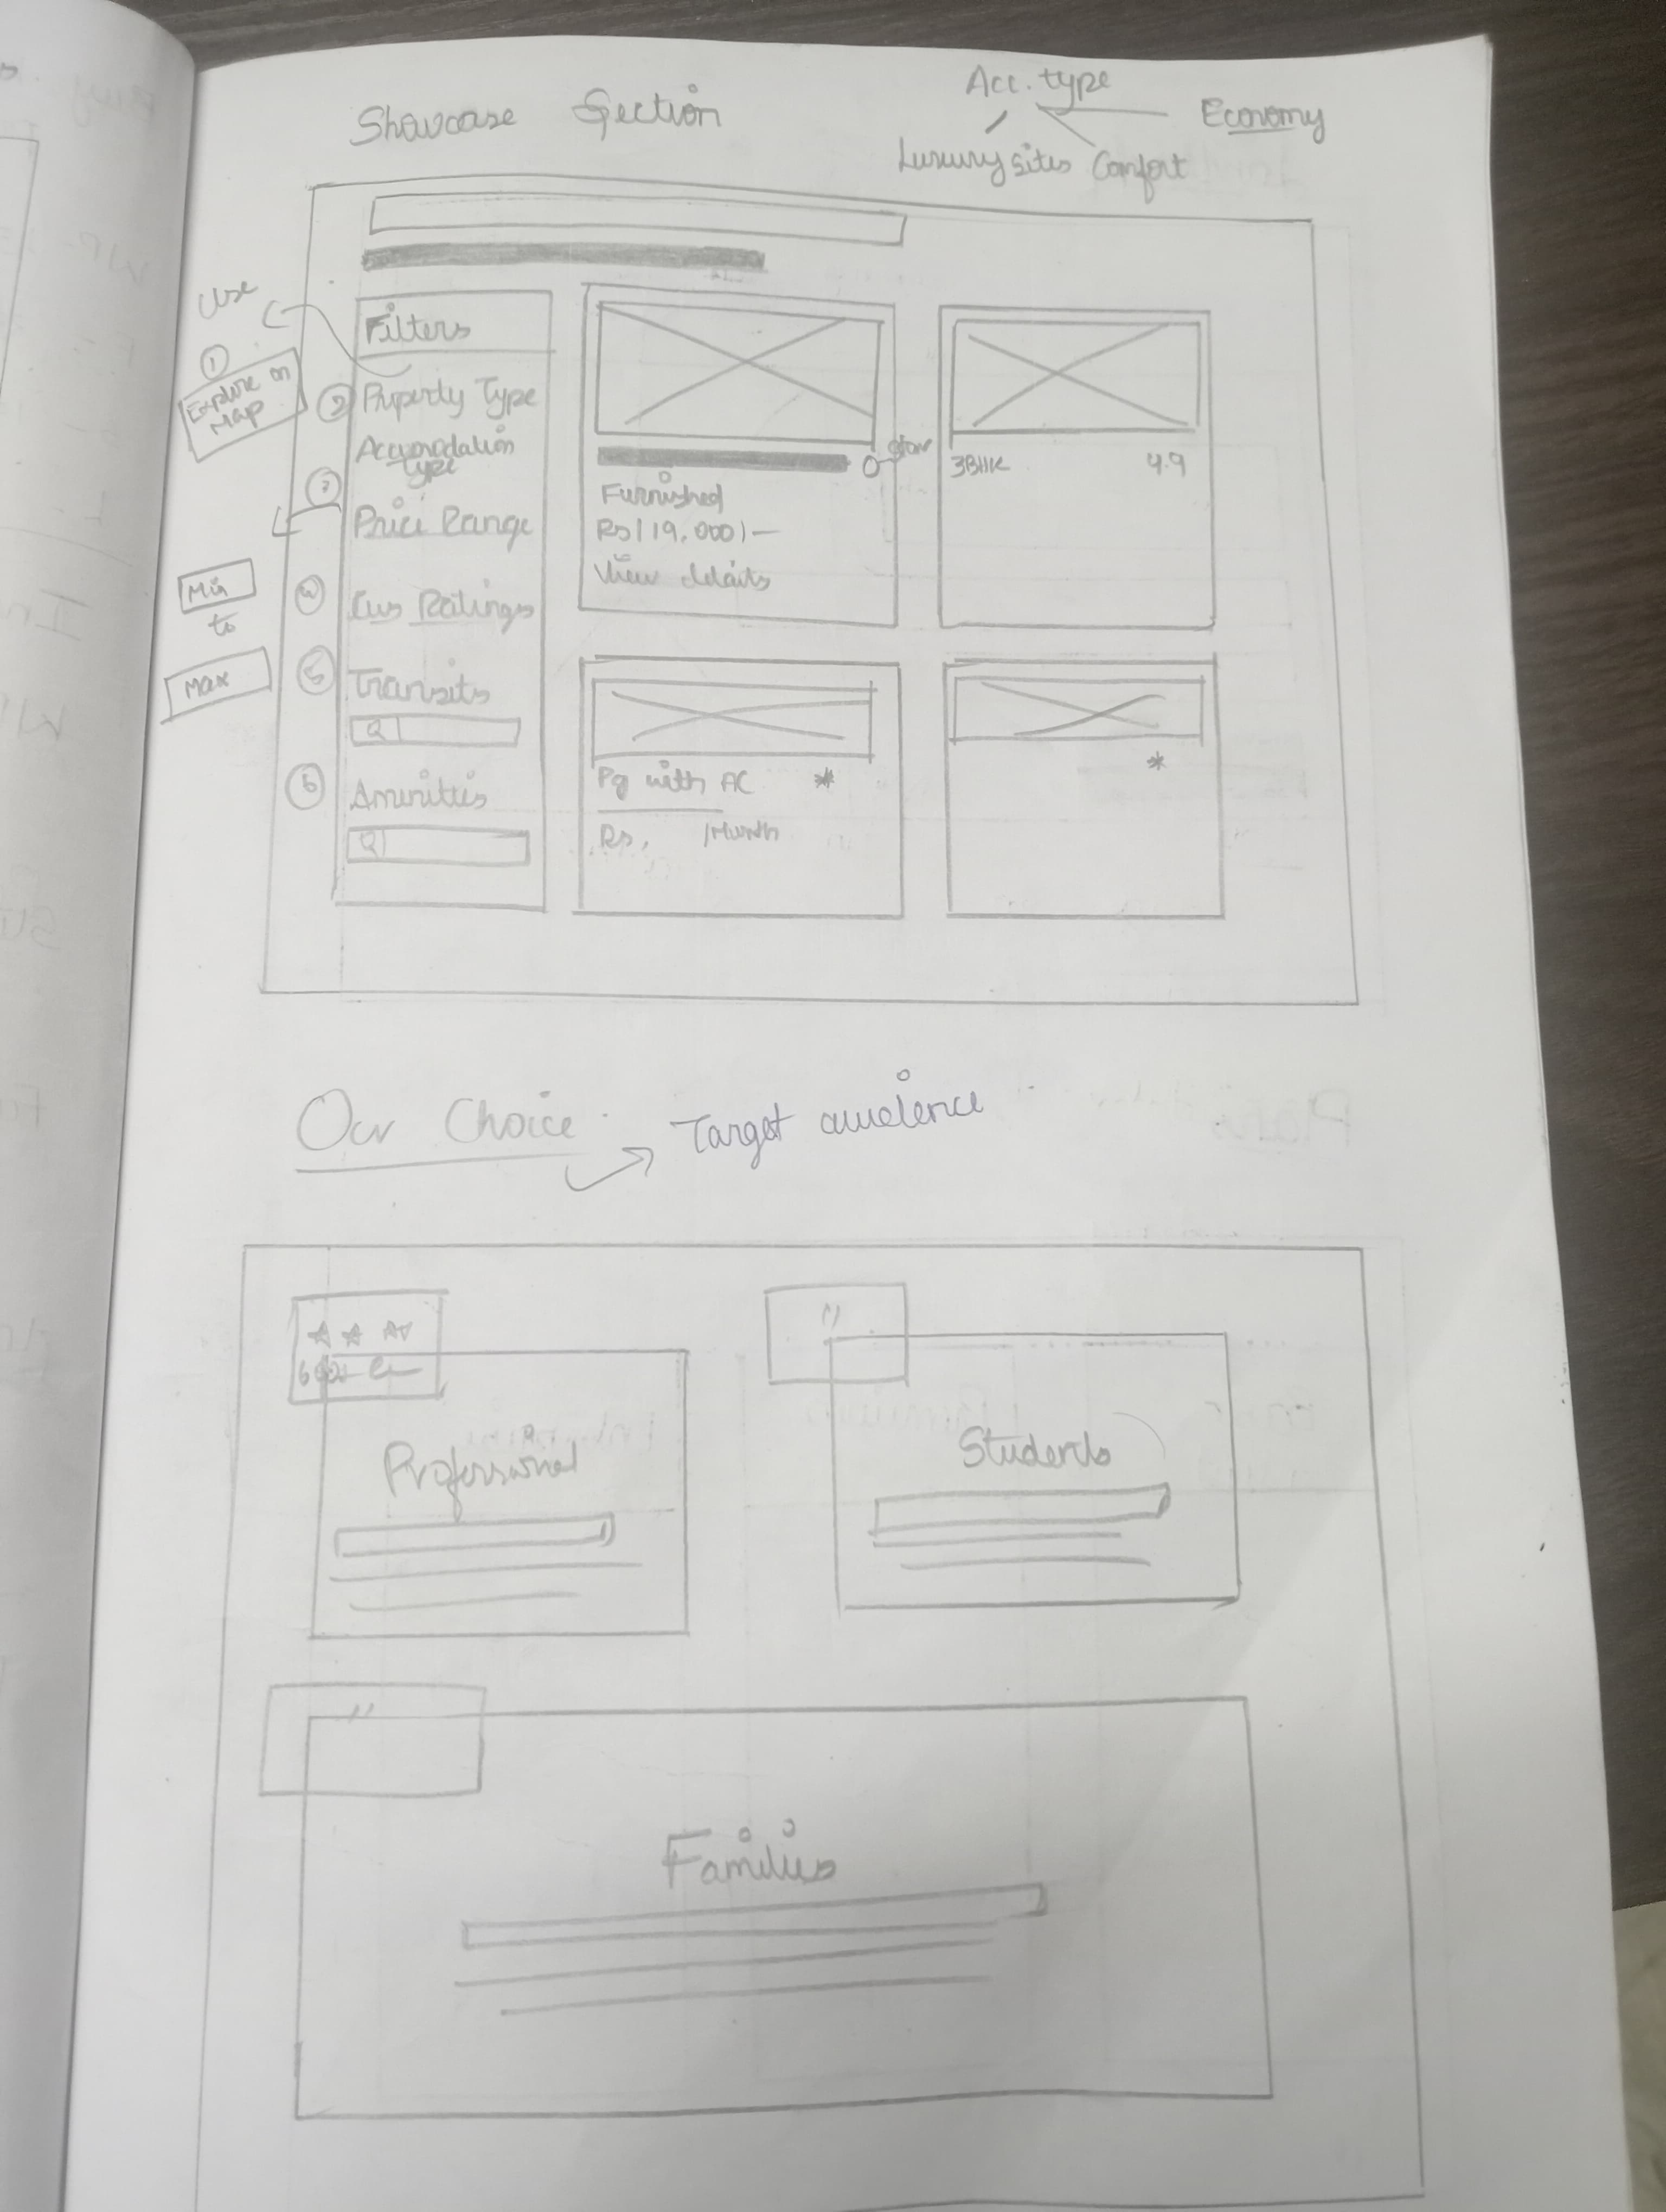 Acc. type
Showcase Section
Economy
Luxury sites Comfort
Use
Filters
1
Explore on
Map
2 Property Type
Accomodation
type
3
Price Range
Min
to
Max
4 Cus Ratings
5 Transits
Q
6 Amenities
Q
star
Furnished
Rs 19,000/-
View details
3BHK 4.9
Pg with AC *
Rs. /Month
*
Our Choice
Target audience
Professional
"
Students
"
Families